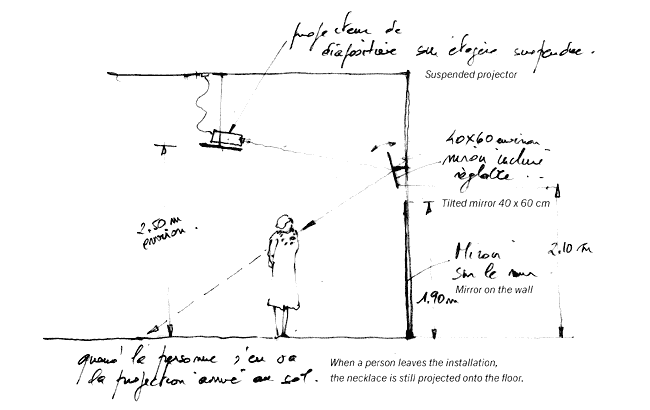 projecteur de
diapositive sur étagère suspendue.
Suspended projector
40x60 environ
miroir incliné
réglable
Tilted mirror 40 x 60 cm
2.50 m
environ.
2.10 m
Miroir
sur le mur
Mirror on the wall
1.90 m
quand la personne s'en va
la projection arrive au sol.
When a person leaves the installation,
the necklace is still projected onto the floor.